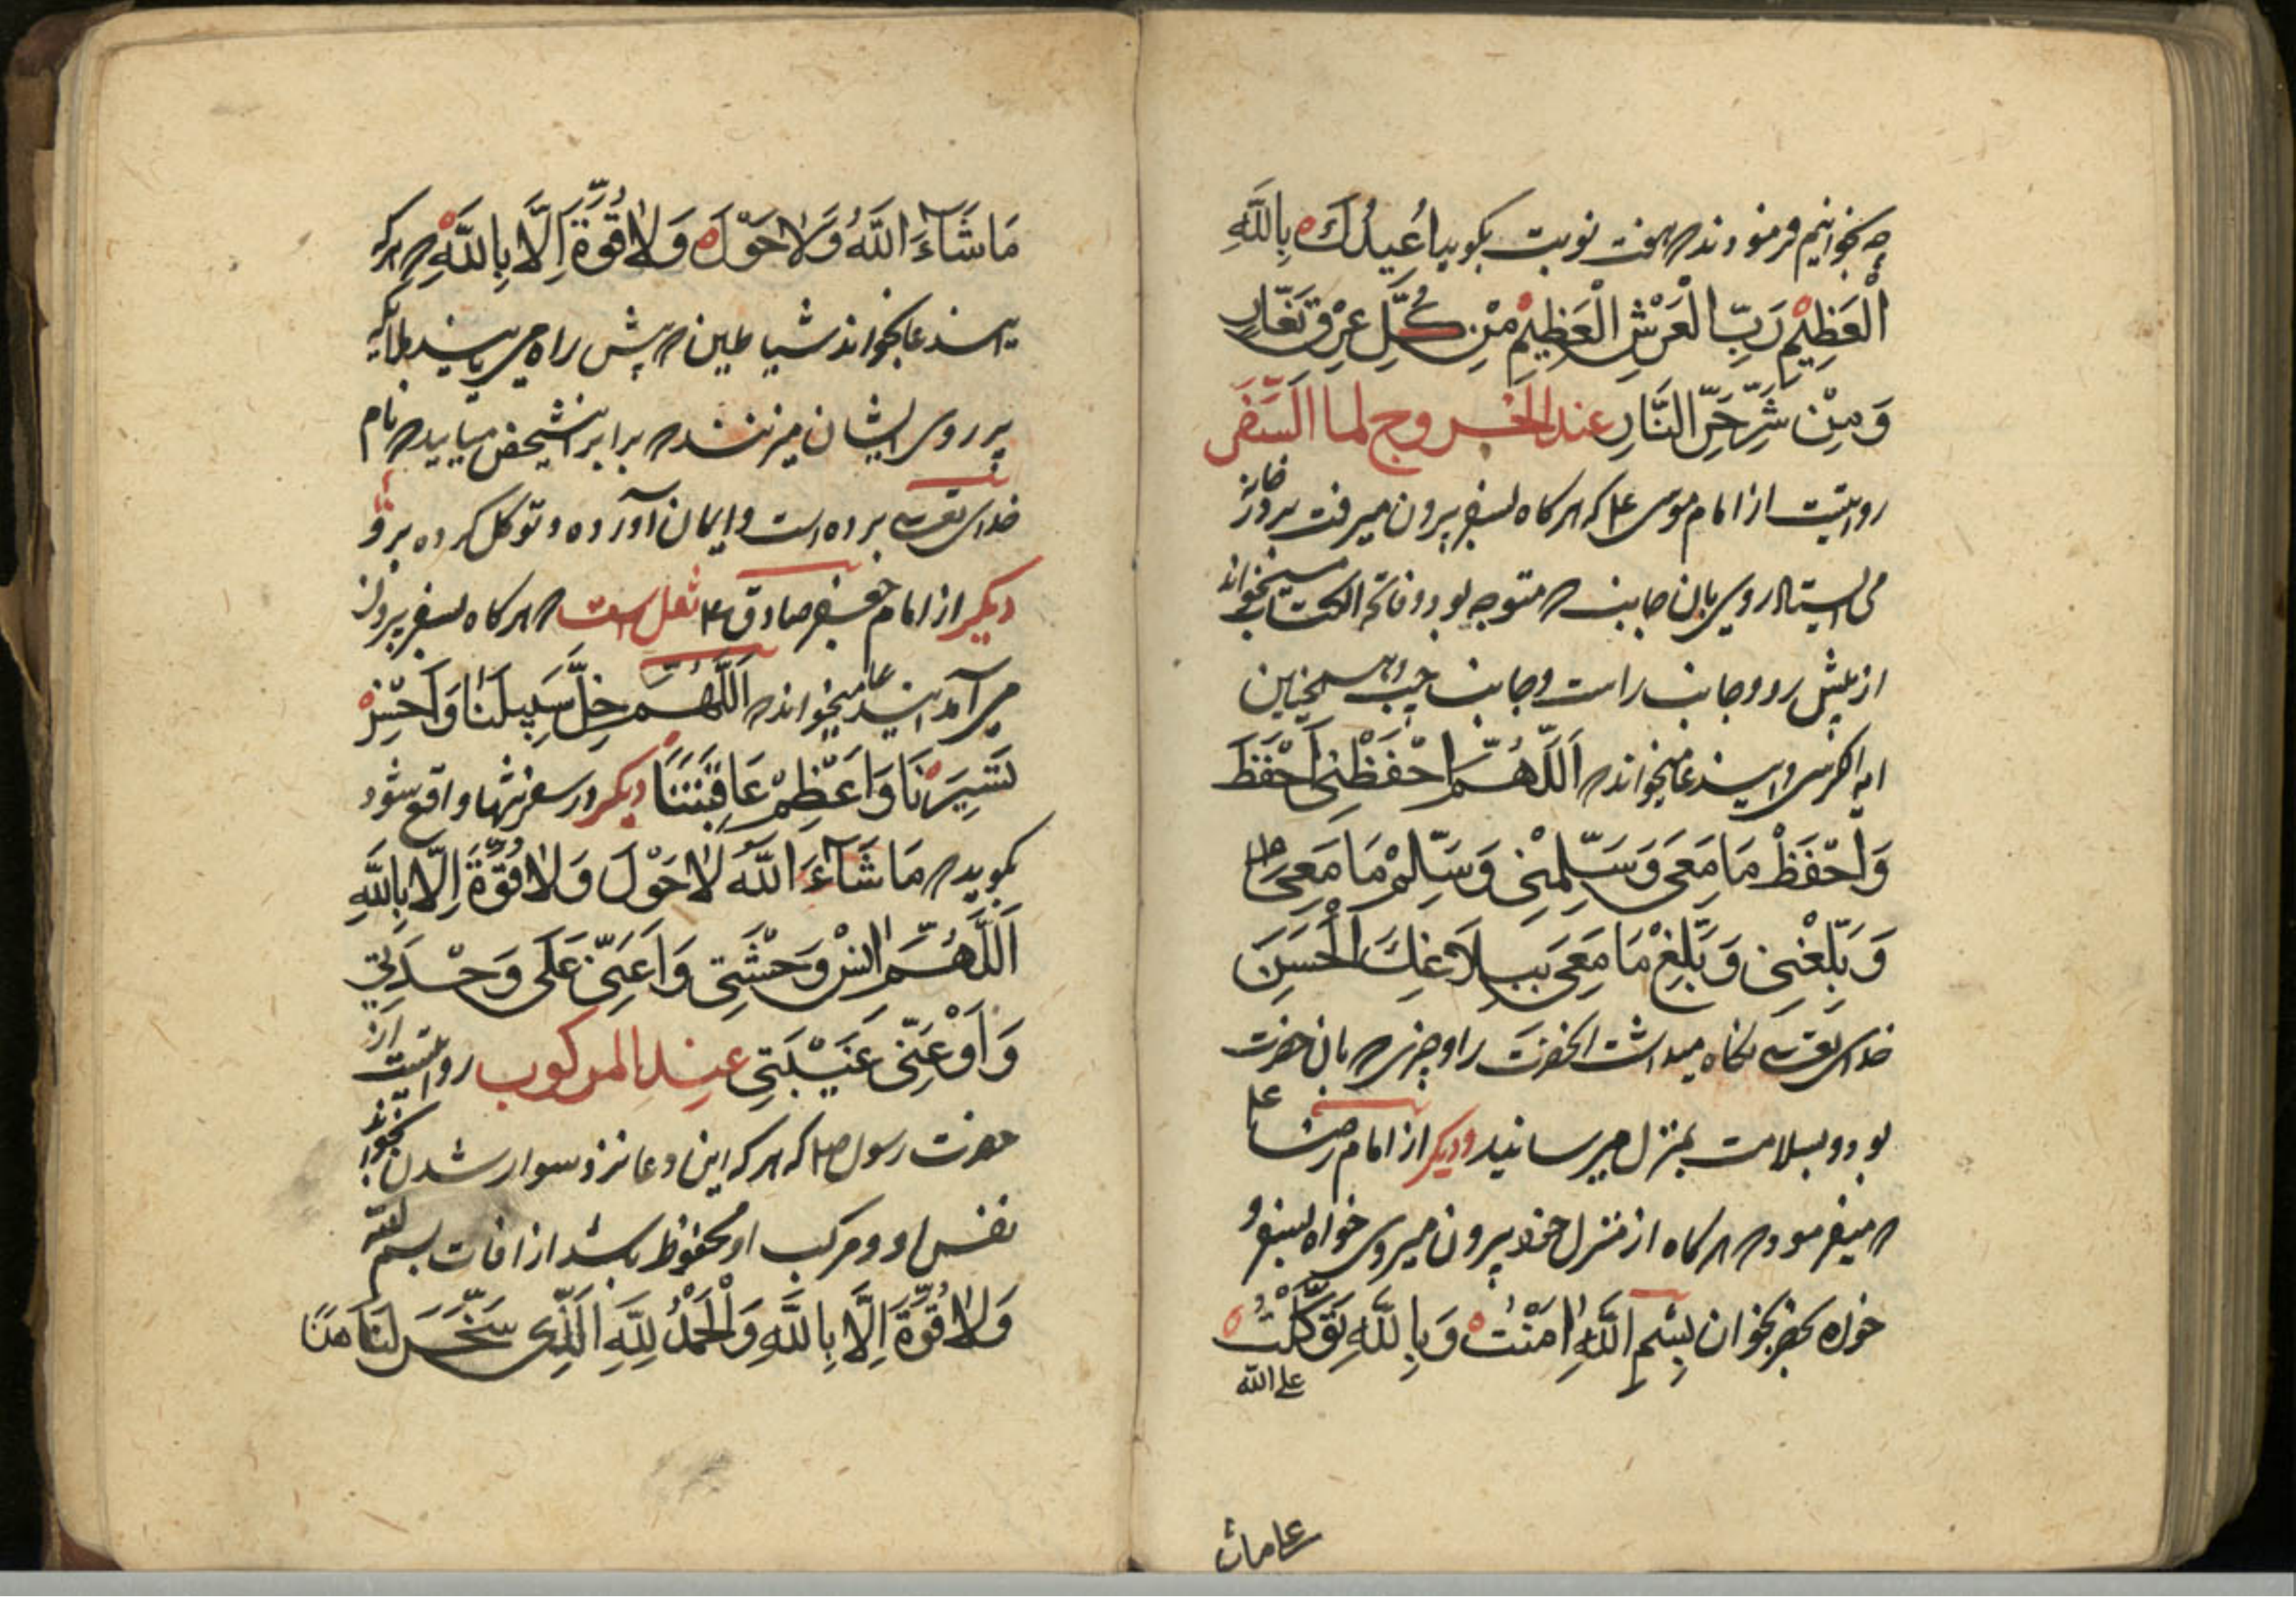 چه بخوانیم فرمودند که هفت نوبت بکوید اُعِیذُكَ بِاللَّهِ
الْعَظِیْمِ رَبِّ الْعَرْشِ الْعَظِیْمِ مِنْ كُلِّ عِرْقٍ نَعَّارٍ
وَمِنْ شَرِّ حَرِّ النَّارِ عند الخروج لما السفر
روایتست از امام موسی ع که هرکاه بسفر بیرون میرفت بر در خانه
می ایستاد روی بان جانب که متوجه بود و فاتحة الکتاب میخواند
از پیش رو و جانب راست و جانب چپ و همچنین
ایه الکرسی و این دعا میخواند که اَللّٰهُمَّ احْفَظْنِی اَحْفَظَ
وَاحْفَظْ مَا مَعِیَ وَسَلِّمْنِی وَسَلِّمْ مَا مَعِیَ
وَبَلِّغْنِی وَبَلِّغْ مَا مَعِیَ بِبِلَاغِكَ الْحَسَنِ
خدای تعالی نکاه میداشت انحضرت را و چیزی که بان حضرت
بود و بسلامت بمنزل میرسانید و دیکر از امام رضا ع
که میفرمود که هرکاه از منزل خود بیرون میروی خواه بسفر و
خواه بحضر بخوان بِسْمِ اللّٰهِ اٰمَنْتُ وَبِاللّٰهِ تَوَكَّلْتُ
علی الله
مَا شَآءَ اللّٰهُ وَلَا حَوْلَ وَلَا قُوَّةَ اِلَّا بِاللّٰهِ که هرکه
این دعا بخواند شیاطین که پیش راه می یابند ملائکه
بر روی ایشان میزنند که برابر انشخص میایید که نام
خدای تعالی برده است و ایمان آورده و توکل کرده برو
دیکر از امام جعفر صادق ع نقل است که هرکاه بسفر بیرون
می آمد این دعا میخواند که اَللّٰهُمَّ خَلِّ سَبِیلَنَا وَاَحْسِنْ
تَسْیِیرَنَا وَاَعْظِمْ عَافِیَتَنَا دیکر در سفر تنها واقع شود
بکوید که مَا شَآءَ اللّٰهُ لَا حَوْلَ وَلَا قُوَّةَ اِلَّا بِاللّٰهِ
اَللّٰهُمَّ اٰنِسْ وَحْشَتِی وَاَعِنِّی عَلَی وَحْدَتِی
وَاَوْعِنِّی غَیْبَتِی عِنْدَ المركوب روایتست از
حضرت رسول ص که هرکه این دعا نزد سوار شدن بخواند
نفس او و مرکب او محفوظ باشد از افات بسم الله
وَلَا قُوَّةَ اِلَّا بِاللّٰهِ وَالْحَمْدُ لِلّٰهِ الَّذِی سَخَّرَ لَنَا هٰذَا